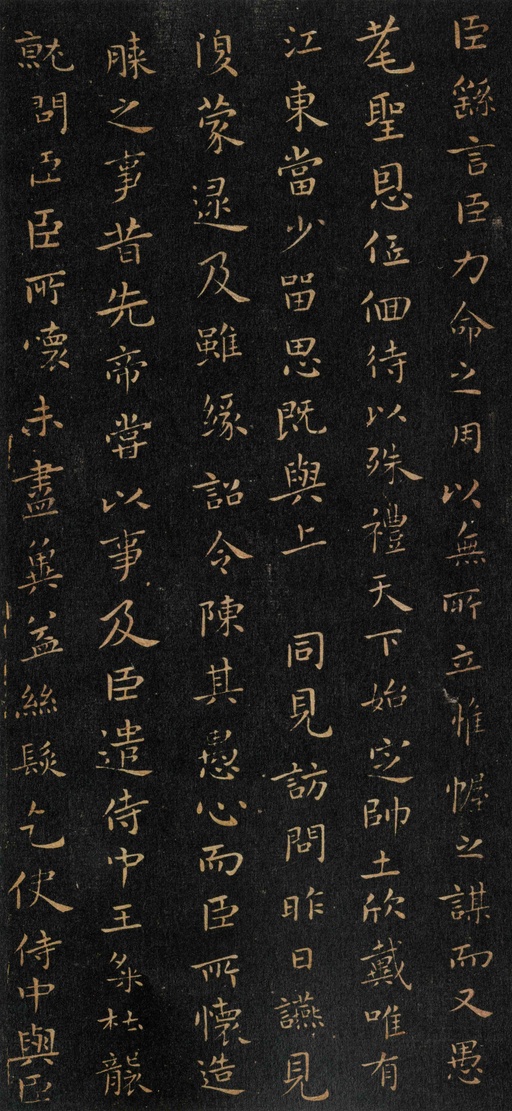 臣繇言臣力命之用以無所立惟幄之謀而又愚
耄聖恩低佪待以殊禮天下始定帥土欣戴唯有
江東當少留思既與上 同見訪問昨日讌見
復蒙逮及雖緣詔令陳其愚心而臣所懷造
膝之事昔先帝嘗以事及臣遣侍中王粲杜襲
就問臣臣所懷未盡奚益絲髮乞使侍中與臣